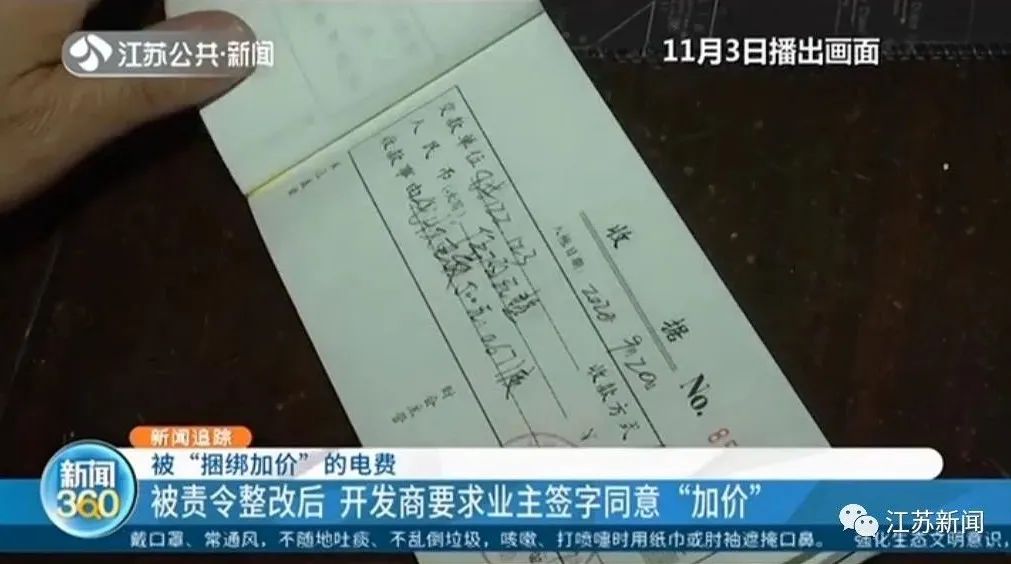 江苏公共·新闻
11月3日播出画面
收 据
No. 85
入账日期: 2020 9月20日
交款单位
收款方式
人民币(大写)
¥
收款事由
财会主管
新闻追踪
新闻360
被“捆绑加价”的电费
被责令整改后 开发商要求业主签字同意“加价”
江苏新闻
戴口罩、常通风，不随地吐痰、不乱倒垃圾，咳嗽、打喷嚏时用纸巾或肘袖遮掩口鼻。 强化生态文明意识，